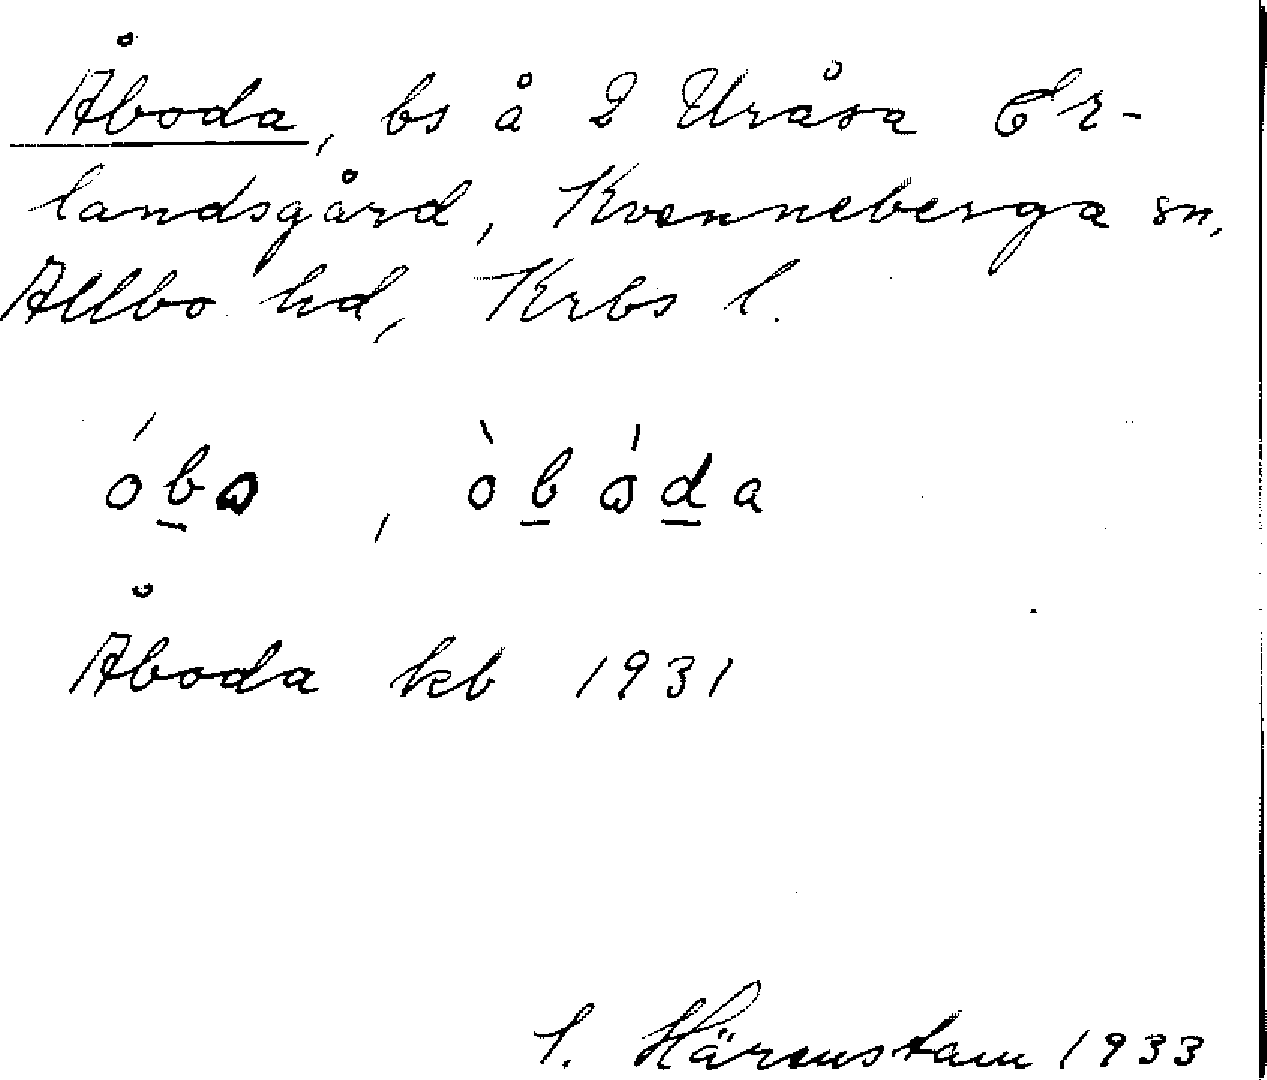 Åboda, bs å 2 Uråsa Er-
landsgård, Kvenneberga sn,
Allbo hd, Krbs l.
óbo, òbóda
Åboda kb 1931
Härenstam 1933